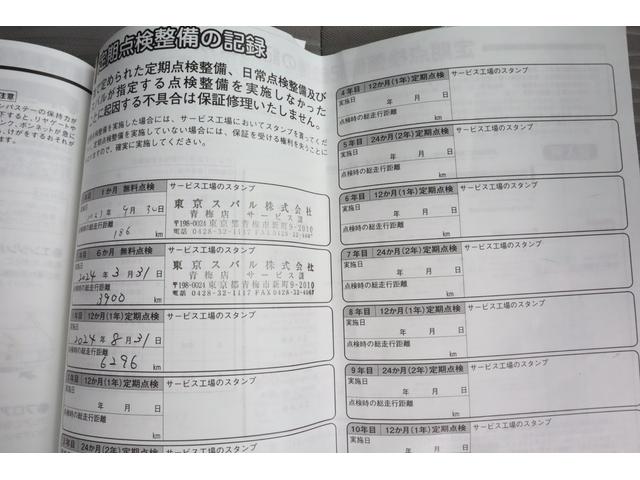 定期点検整備の記録
定められた定期点検整備、日常点検整備及び
が指定する点検整備を実施しなかった
ことに起因する不具合は保証修理いたしません。
整備を実施した場合には、サービス工場においてスタンプを買ってくだ
定期点検整備を実施していない場合には、保証を受ける権利を失うことに
ますので、確実に実施してください。
1か月 無料点検 サービス工場のスタンプ
年 4月 30日
点検時の総走行距離
186 km
東京スバル株式会社
青梅店 サービス課
〒198-0024 東京都青梅市新町9-2010
電話 0428-32-1117 FAX 0428-32-4067
6か月 無料点検 サービス工場のスタンプ
2024年 3月 31日
の総走行距離
3900 km
東京スバル株式会社
青梅店 サービス課
〒198-0024 東京都青梅市新町9-2010
電話 0428-32-1117 FAX 0428-32-4067
12か月(1年)定期点検 サービス工場のスタンプ
2024年 8月 31日
の総走行距離
6296 km
年目 12か月(1年)定期点検 サービス工場のスタンプ
年 月 日
点検時の総走行距離
km
年目 24か月(2年)定期点検 サービス工場のスタンプ
注意
4年目 12か月(1年)定期点検 サービス工場のスタンプ
実施日
年 月 日
点検時の総走行距離
km
5年目 24か月(2年)定期点検 サービス工場のスタンプ
実施日
年 月 日
点検時の総走行距離
km
6年目 12か月(1年)定期点検 サービス工場のスタンプ
実施日
年 月 日
点検時の総走行距離
km
7年目 24か月(2年)定期点検 サービス工場のスタンプ
実施日
年 月 日
点検時の総走行距離
km
8年目 12か月(1年)定期点検 サービス工場のスタンプ
実施日
年 月 日
点検時の総走行距離
km
9年目 24か月(2年)定期点検 サービス工場のスタンプ
実施日
年 月 日
点検時の総走行距離
km
10年目 12か月(1年)定期点検 サービス工場のスタンプ
実施日
年 月 日
点検時の総走行距離
km